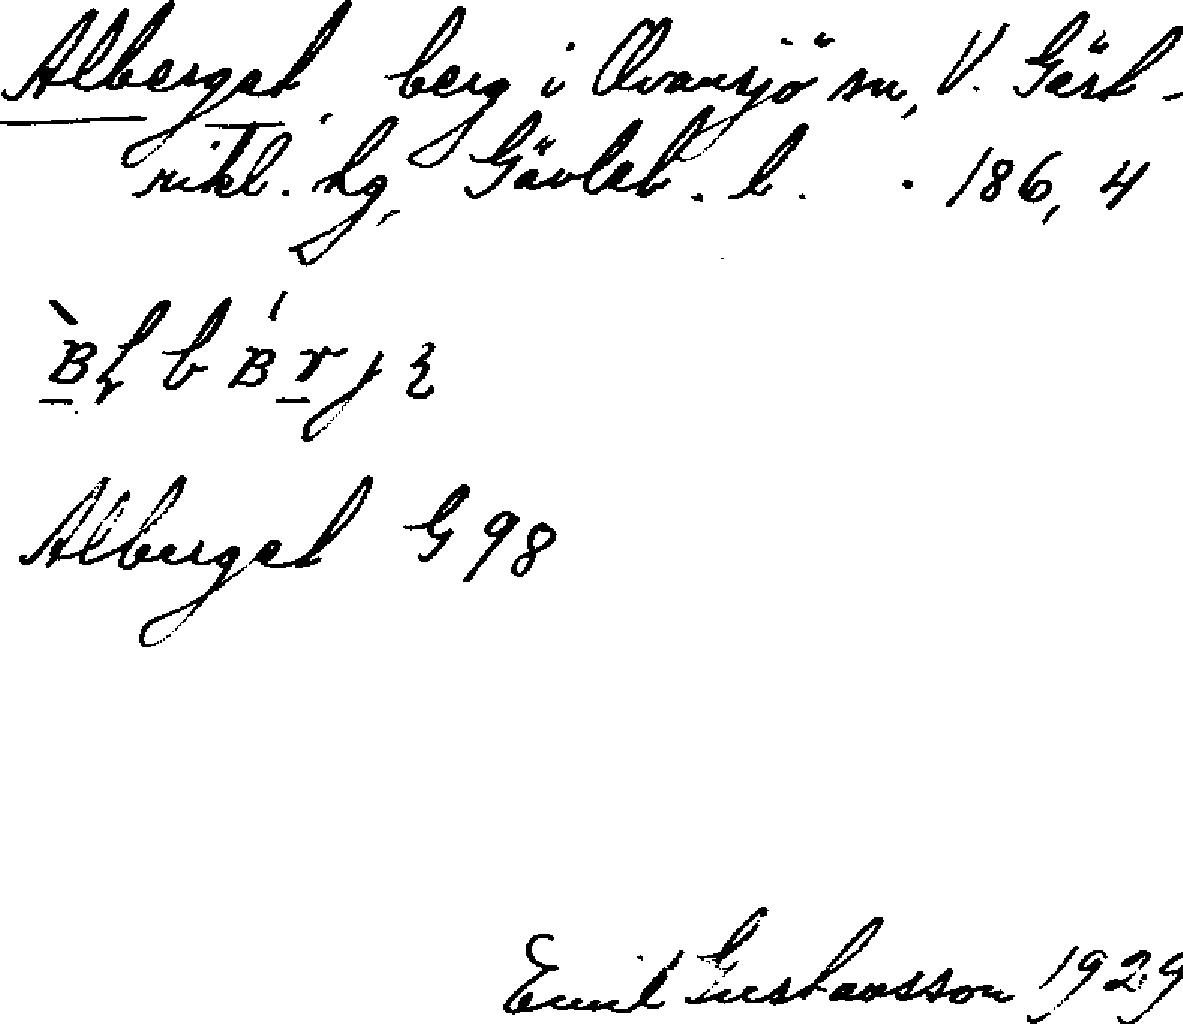 Alberget, berg i Ovansjö sn, V. Gäst-
rikl. hg, Gävleb. l. . 186, 4
Alberget G 98
Emil Gustavsson 1929